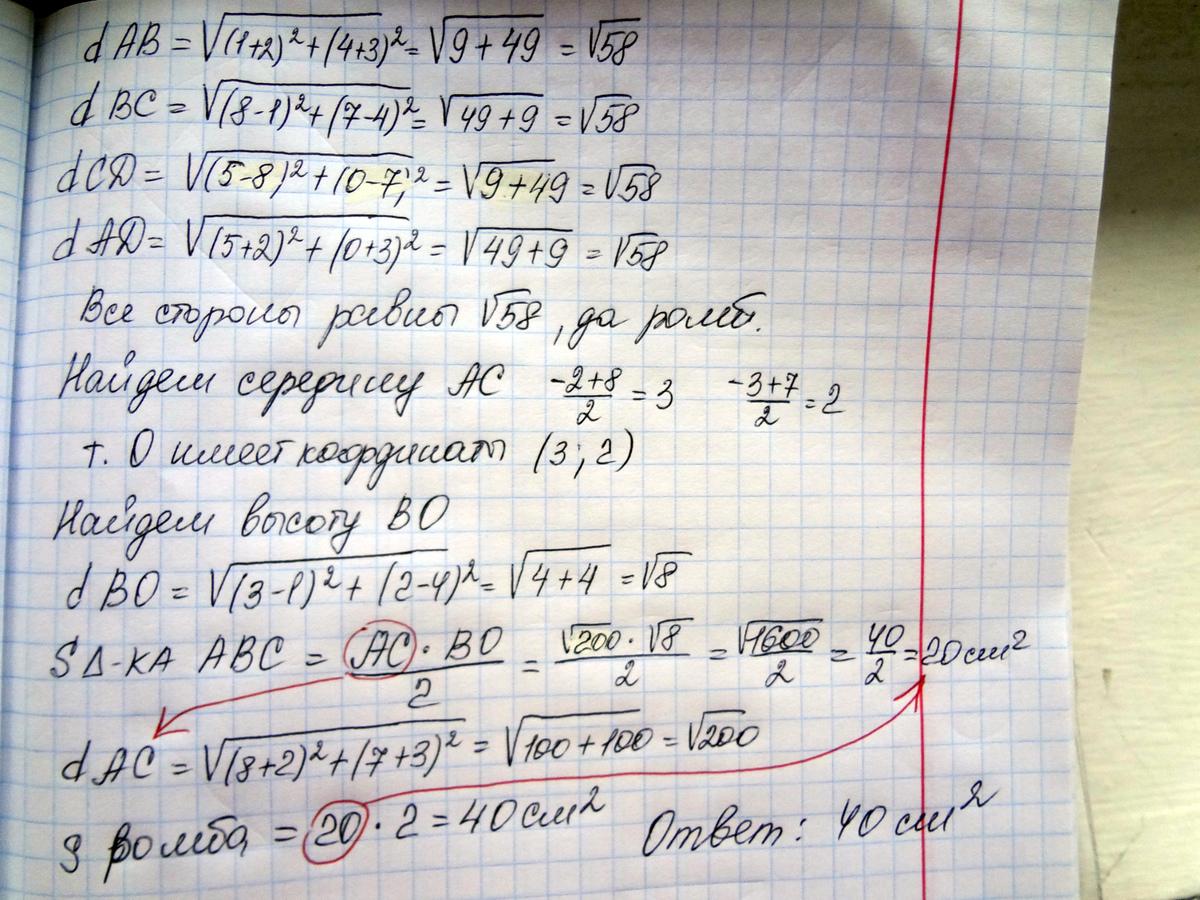 d AB = √(1+2)² + (4+3)² = √9 + 49 = √58
d BC = √(8-1)² + (7-4)² = √49 + 9 = √58
d CD = √(5-8)² + (0-7)² = √9 + 49 = √58
d AD = √(5+2)² + (0+3)² = √49 + 9 = √58
Все стороны равны √58, да ромб.
Найдем середину AC -2+8/2 = 3 -3+7/2 = 2
т. O имеет координаты (3; 2)
Найдем высоту BO
d BO = √(3-1)² + (2-4)² = √4 + 4 = √8
S Δ-КА ABC = AC · BO/2 = √200 · √8/2 = √1600/2 = 40/2 = 20 см²
d AC = √(8+2)² + (7+3)² = √100 + 100 = √200
S ромба = 20 · 2 = 40 см² Ответ: 40 см²